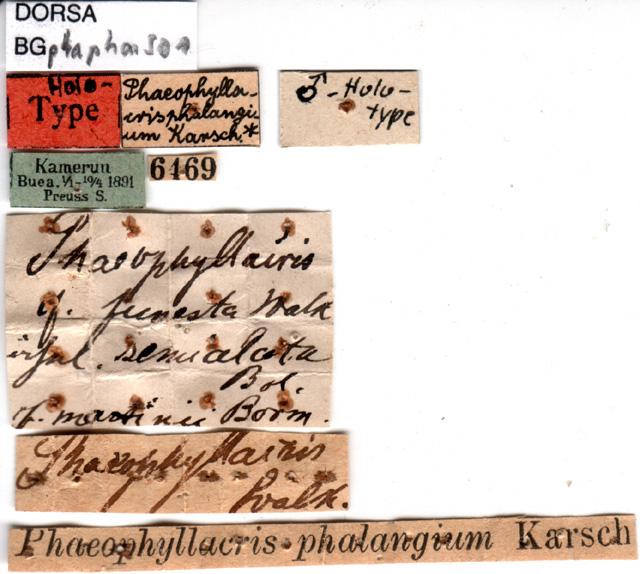 DORSA
BG
Holo-
Type
Phaeophylla-
crisphalangi
um Karsch.*
♂-Holo-
type
Kamerun
Buea. 1/1-10/4 1891
Preuss S.
6169
Phaeophyllacris
cf. funesta Walk
semialata
Bol.
cf. martinii Borm.
Phaeophyllacris
Walk.
Phaeophyllacris phalangium Karsch